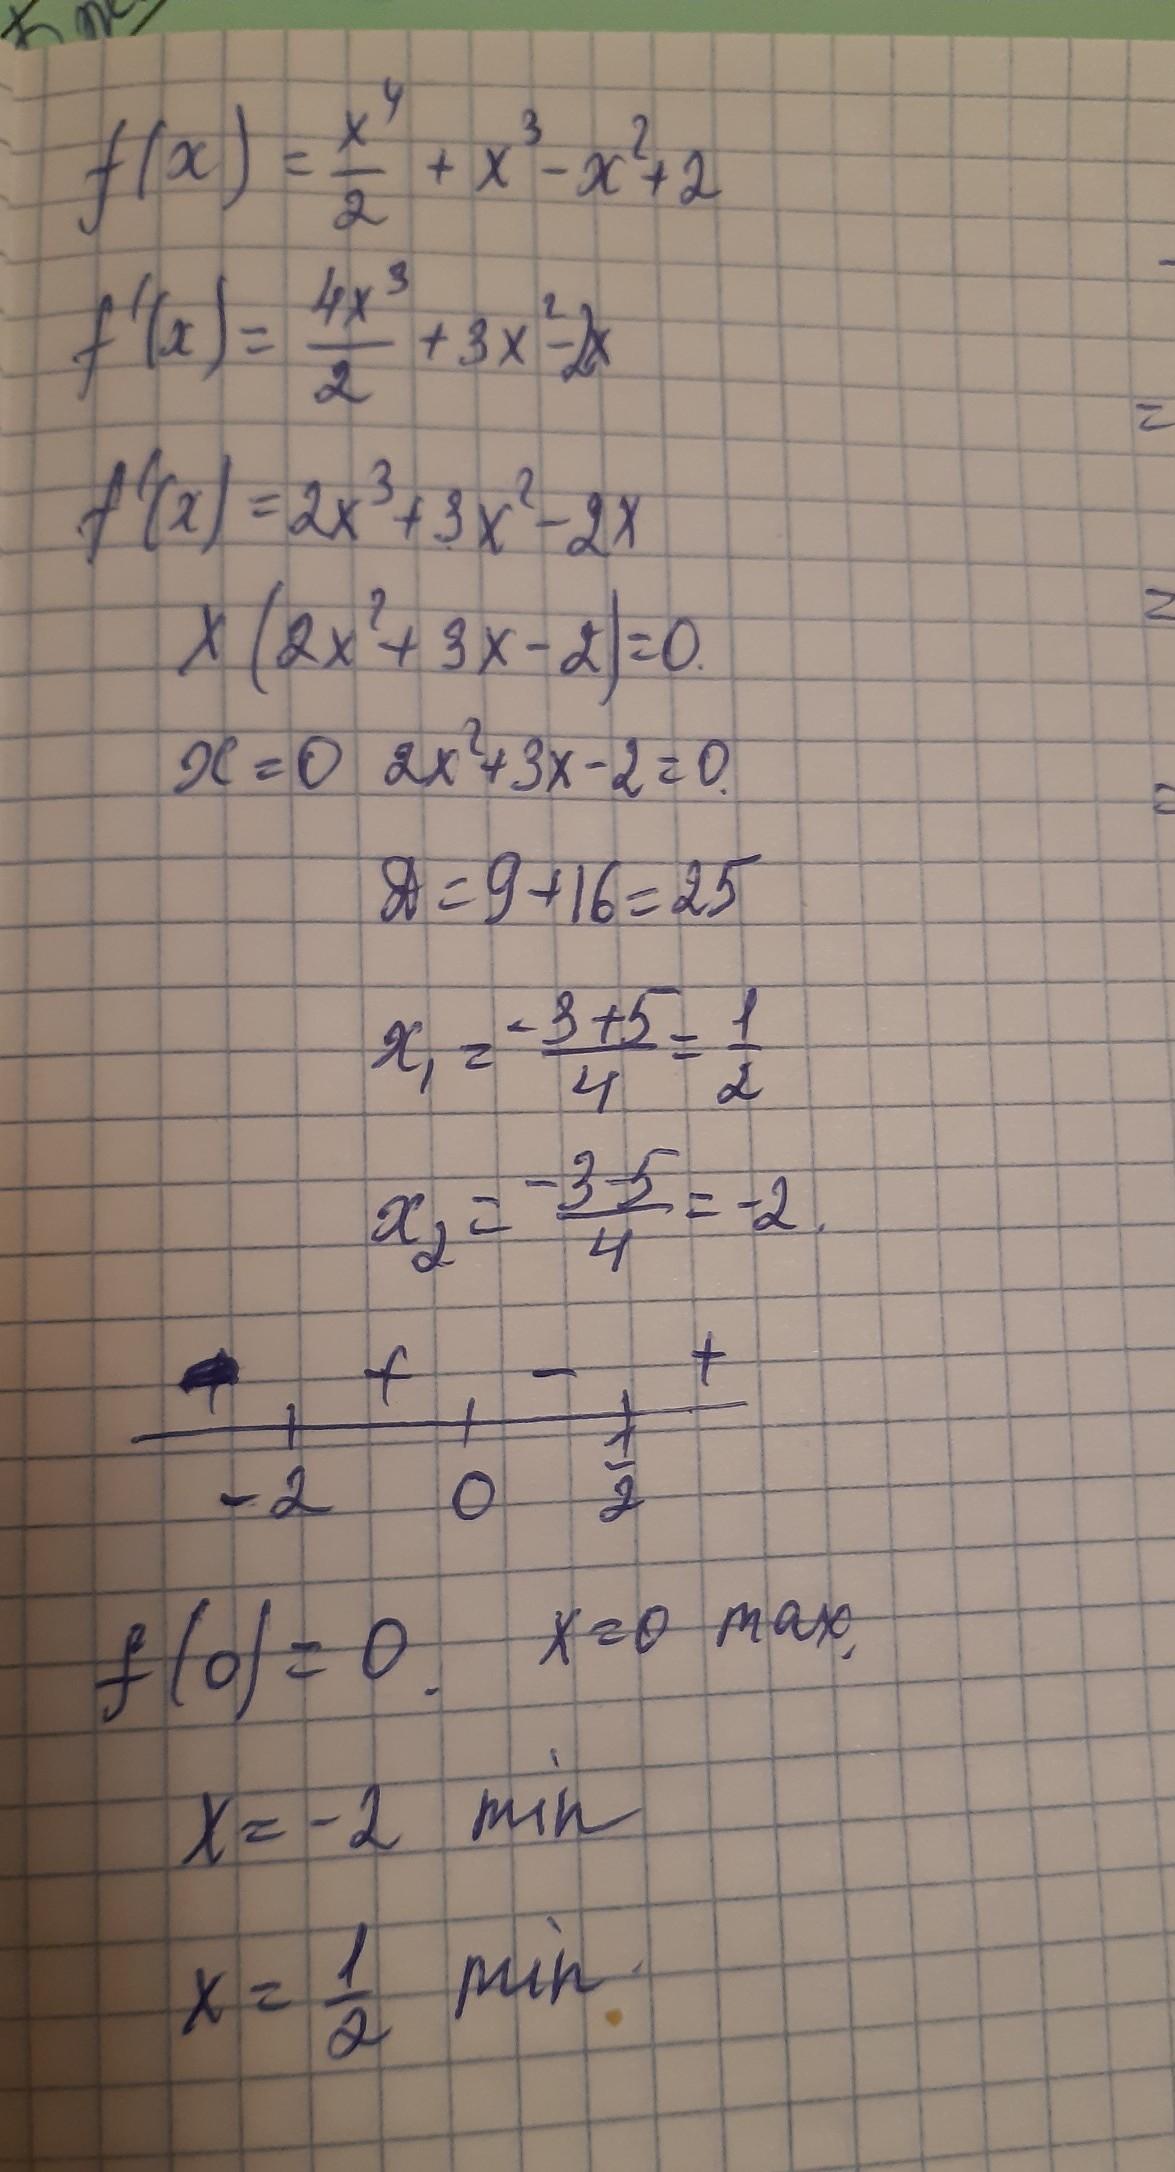 f(x) = x⁴/2 + x³ - x² + 2
f'(x) = 4x³/2 + 3x² - 2x
f'(x) = 2x³ + 3x² - 2x
x(2x² + 3x - 2) = 0.
x = 0 2x² + 3x - 2 = 0.
D = 9 + 16 = 25
x₁ = (-3+5)/4 = 1/2
x₂ = (-3-5)/4 = -2.
+ - +
-2 0 1/2
f(0) = 0. x = 0 max.
x = -2 min
x = 1/2 min